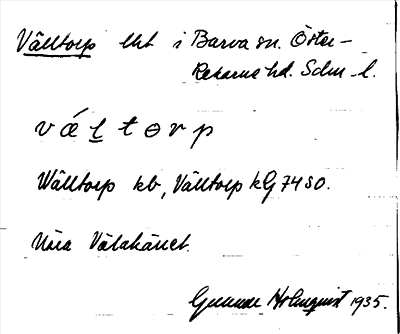 Välltorp lht i Barva sn. Öster-
Rekarne hd. Sdm-l.
v ǽ l t o r p
Wälltorp kb, Välltorp kG 7480.
Nära Vätakärret.
Gunnar Holmquist 1935.